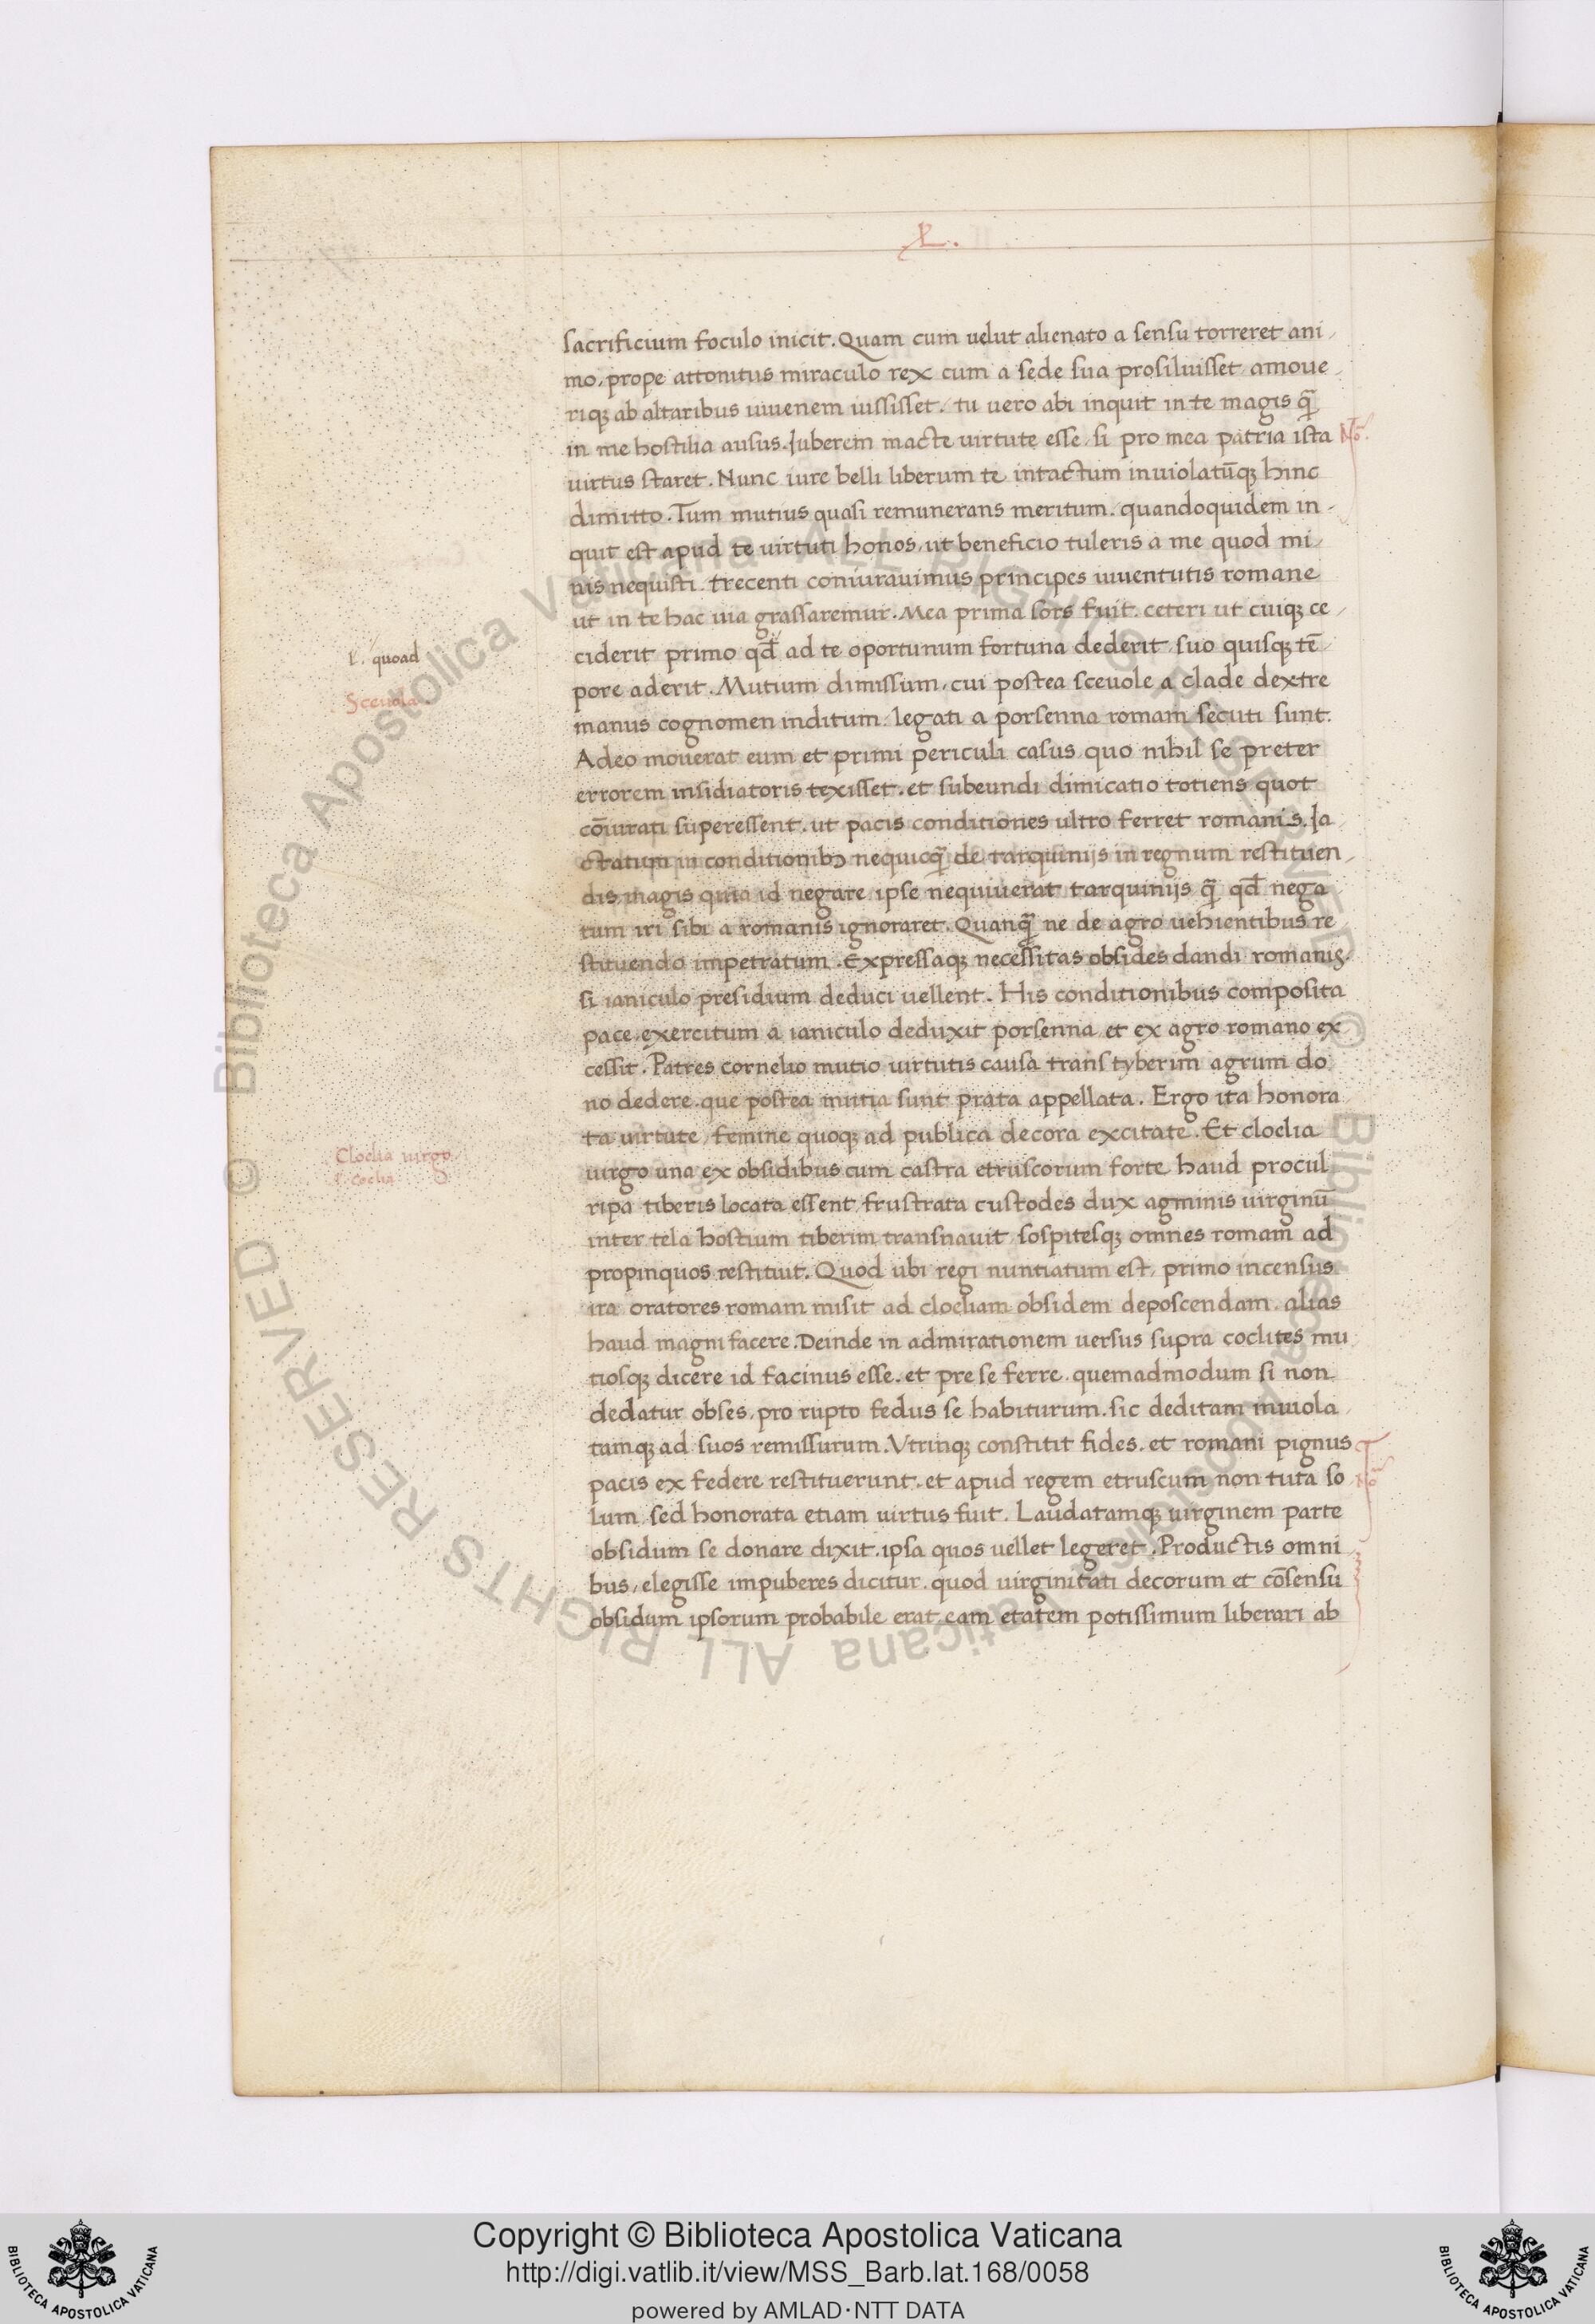 L.
sacrificium foculo inicit. Quam cum uelut alienato a sensu torreret ani-
mo, prope attonitus miraculo rex cum a sede sua prosiluisset amoue-
riqꝫ ab altaribus iuuenem iussisset. tu uero abi inquit in te magis qꝫ̄
in me hostilia ausus. Iuberem macte uirtute esse si pro mea patria ista
No.
uirtus staret. Nunc iure belli liberum te intactum inuiolatūqꝫ hinc
dimitto. Tum mutius quasi remunerans meritum. quandoquidem in-
quit est apud te uirtuti honos, ut beneficio tuleris a me quod mi-
nis nequisti. trecenti coniurauimus principes iuuentutis romane
ut in te hac uia grassaremur. Mea prima sors fuit. ceteri ut cuiqꝫ ce-
l. quoad
ciderit primo qd̄ ad te oportunum fortuna dederit suo quisqꝫ tē-
Sceuola.
pore aderit. Mutium dimissum, cui postea sceuole a clade dextre
manus cognomen inditum. legati a porsenna romam secuti sunt.
Adeo mouerat eum et primi periculi casus quo nihil se preter
errorem insidiatoris texisset. et subeundi dimicatio totiens quot
cōiurati superessent. ut pacis conditiones ultro ferret romanis. Ia
ctatum in conditionibꝫ nequicqꝫ̄ de tarquinijs in regnum restituen-
dis, magis quia id negare ipse nequiuerat tarquinijs qꝫ̄ qd̄ nega
tum iri sibi a romanis ignoraret. Quanqꝫ̄ ne de agro uehientibus re
stituendo impetratum. Expressaqꝫ necessitas obsides dandi romanis.
si ianiculo presidium deduci uellent. His conditionibus composita
pace, exercitum a ianiculo deduxit porsenna et ex agro romano ex
cessit. Patres cornelio mutio uirtutis causa trans tyberim agrum do
no dedere. que postea mutia sunt prata appellata. Ergo ita honora
ta uirtute, femine quoqꝫ ad publica decora excitate. Et cloelia
Cloelia uirgo.
uirgo una ex obsidibus cum castra etruscorum forte haud procul
ripa tiberis locata essent, frustrata custodes dux agminis uirginū
inter tela hostium tiberim transnauit sospitesqꝫ omnes romam ad
propinquos restituit. Quod ubi regi nuntiatum est, primo incensus
ira oratores romam misit ad cloeliam obsidem deposcendam. alias
haud magni facere. Deinde in admirationem uersus supra coclites mu
tiosqꝫ dicere id facinus esse. et pre se ferre. quemadmodum si non
dedatur obses, pro rupto fedus se habiturum. sic deditam inuiola
tamqꝫ ad suos remissurum. Vtrinqꝫ constitit fides. et romani pignus
pacis ex federe restituerunt. et apud regem etruscum non tuta so
No
lum, sed honorata etiam uirtus fuit. Laudatamqꝫ uirginem parte
obsidum se donare dixit. ipsa quos uellet legeret. Productis omni
bus, elegisse impuberes dicitur. quod uirginitati decorum et cōsensu
obsidum ipsorum probabile erat eam etatem potissimum liberari ab
© Biblioteca Apostolica Vaticana ALL RIGHTS RESERVED
© Biblioteca Apostolica Vaticana ALL RIGHTS RESERVED
Copyright © Biblioteca Apostolica Vaticana
http://digi.vatlib.it/view/MSS_Barb.lat.168/0058
powered by AMLAD·NTT DATA
BIBLIOTECA APOSTOLICA VATICANA
BIBLIOTECA APOSTOLICA VATICANA